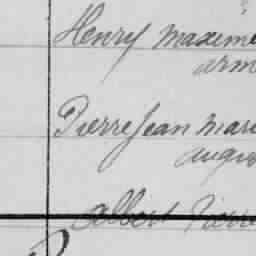 Henry Maxime
arm
Pierre Jean Mari
augu
Albert Pierre